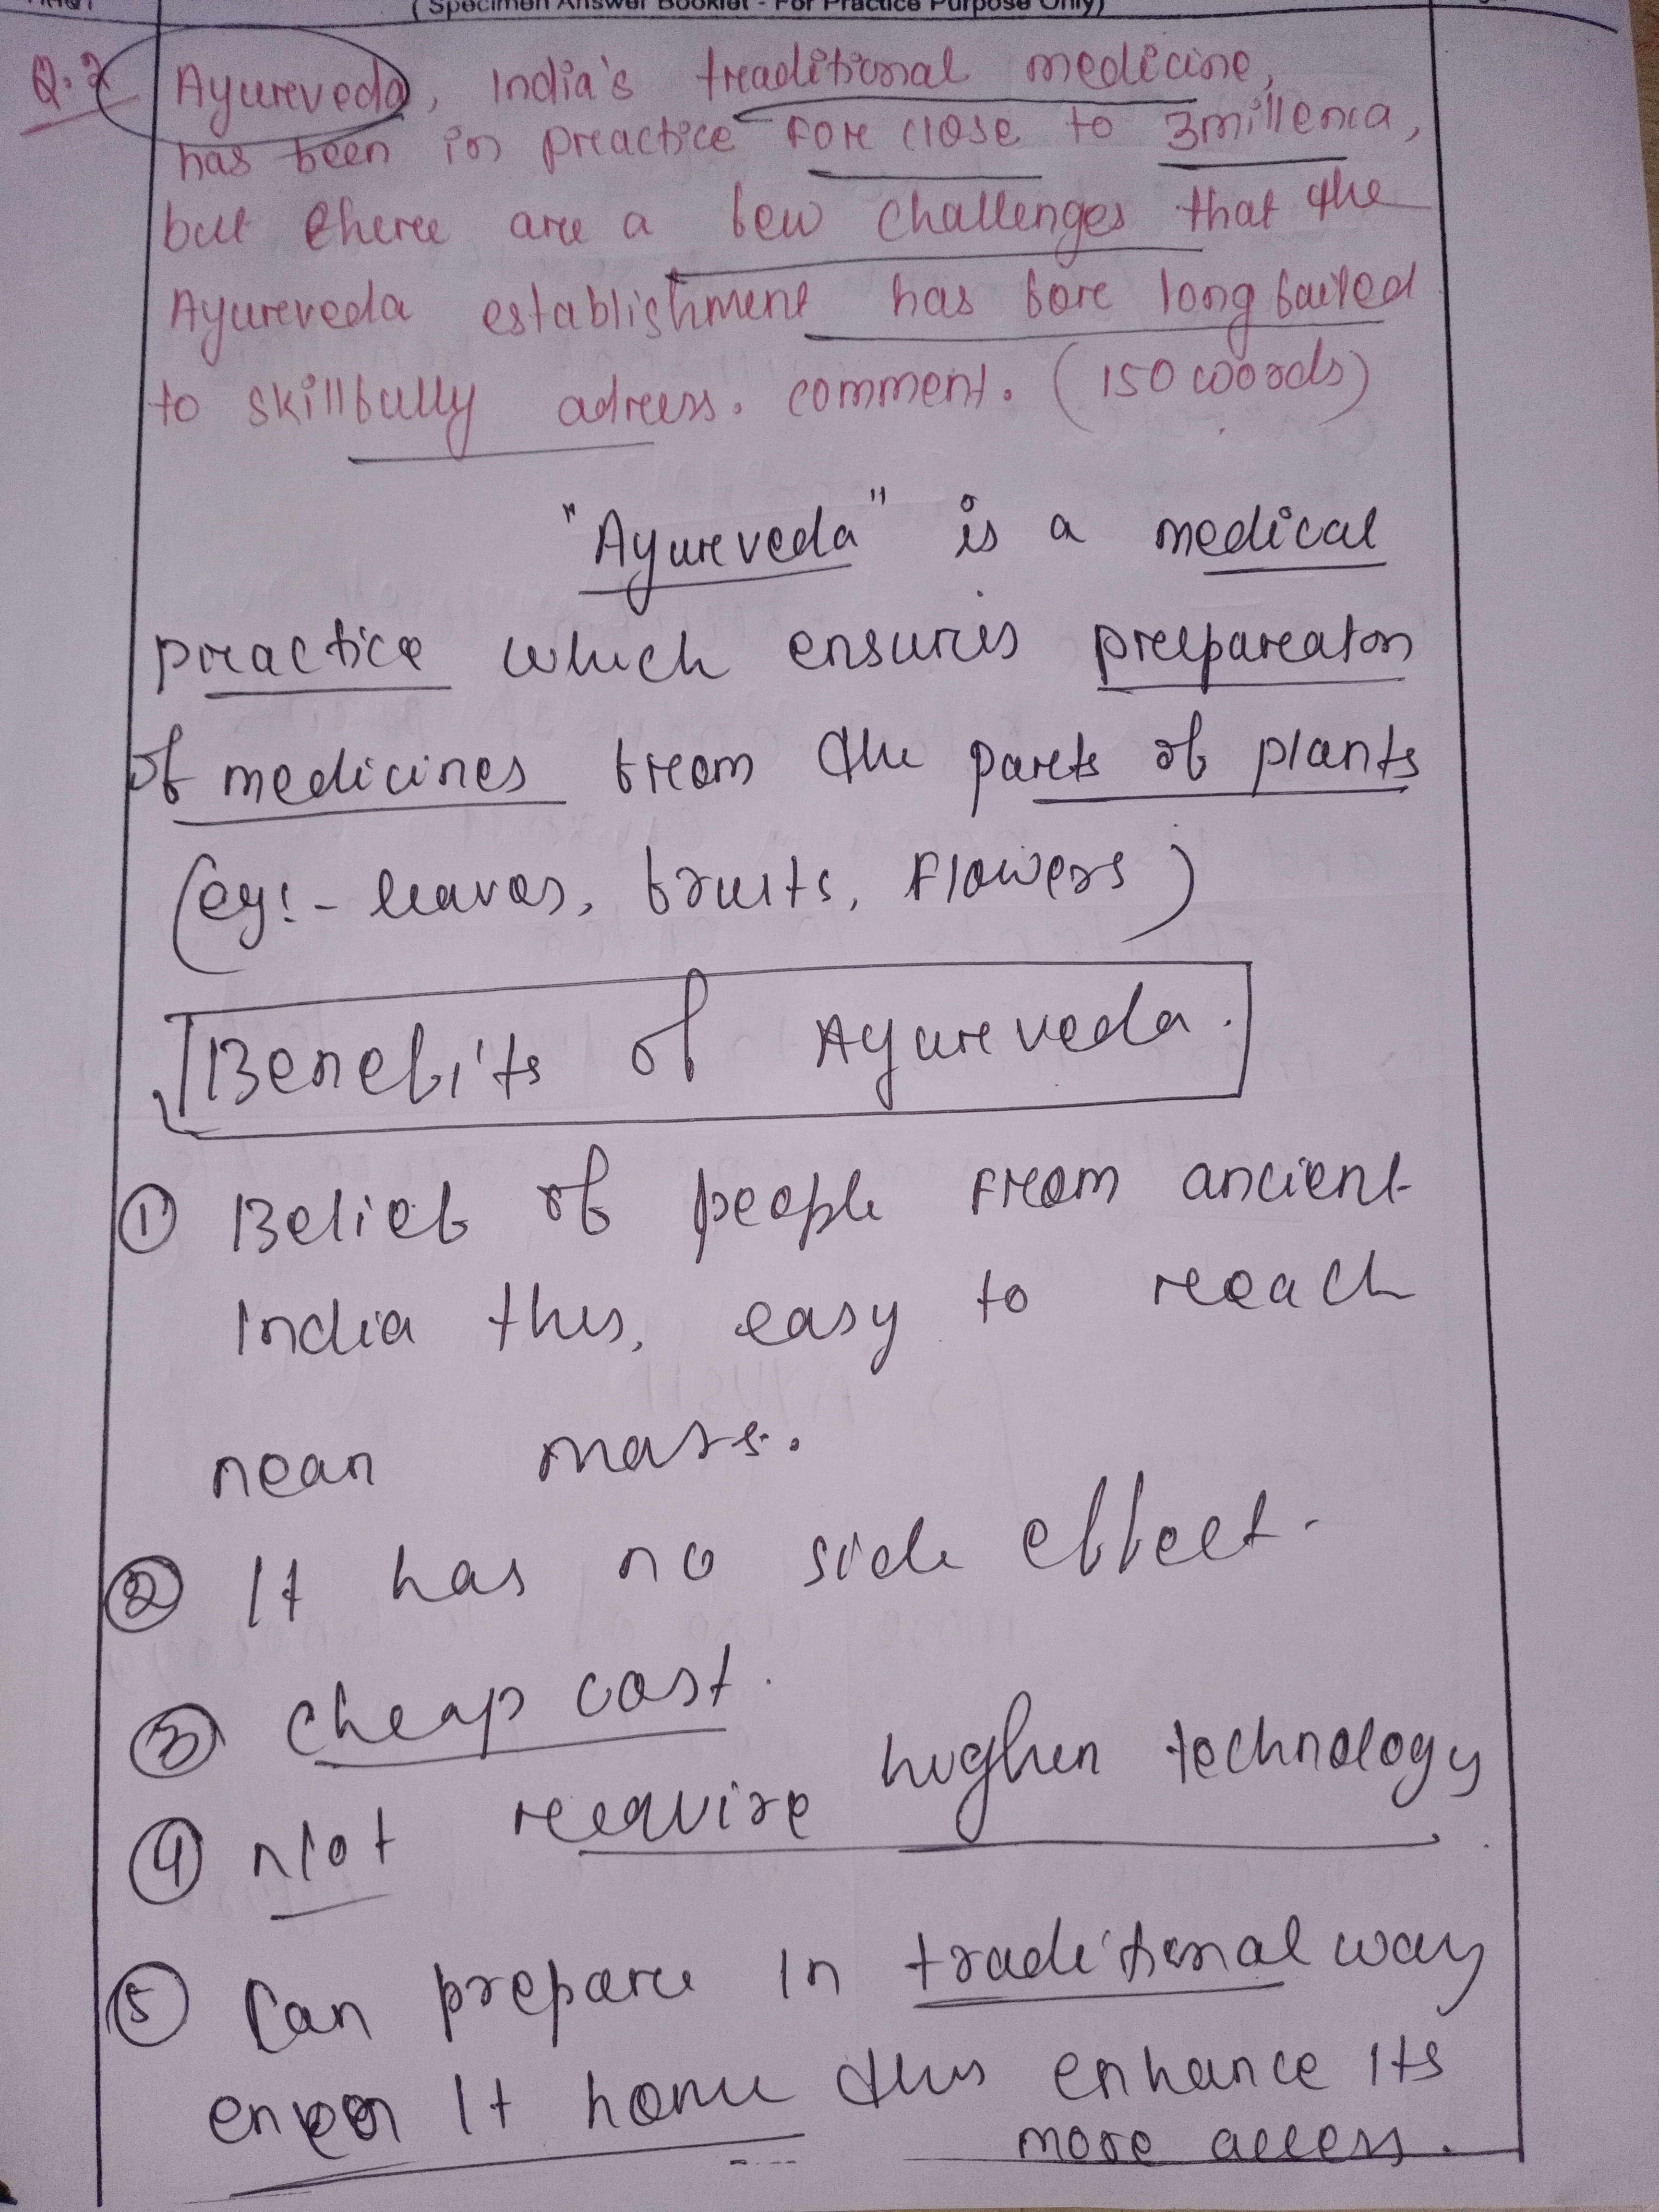 (Specimen Answer Booklet - For Practice Purpose Only)
Q.2 Ayurveda, India's traditional medicine,
has been in practice for close to 3millenia,
but there are a few challenges that the
Ayurveda establishment has for long failed
to skillfully adress. comment. (150 words)
"Ayurveda" is a medical
practice which ensures preparaton
of medicines from the parts of plants
(eg:- leaves, fruits, Flowers)
Benefits of Ayurveda.
① Belief of people from ancient
India thus, easy to reach
near mass.
② It has no side effect.
③ cheap cost.
④ Not require higher technology
⑤ Can prepare in traditional way
It home thus enhance its
more access.